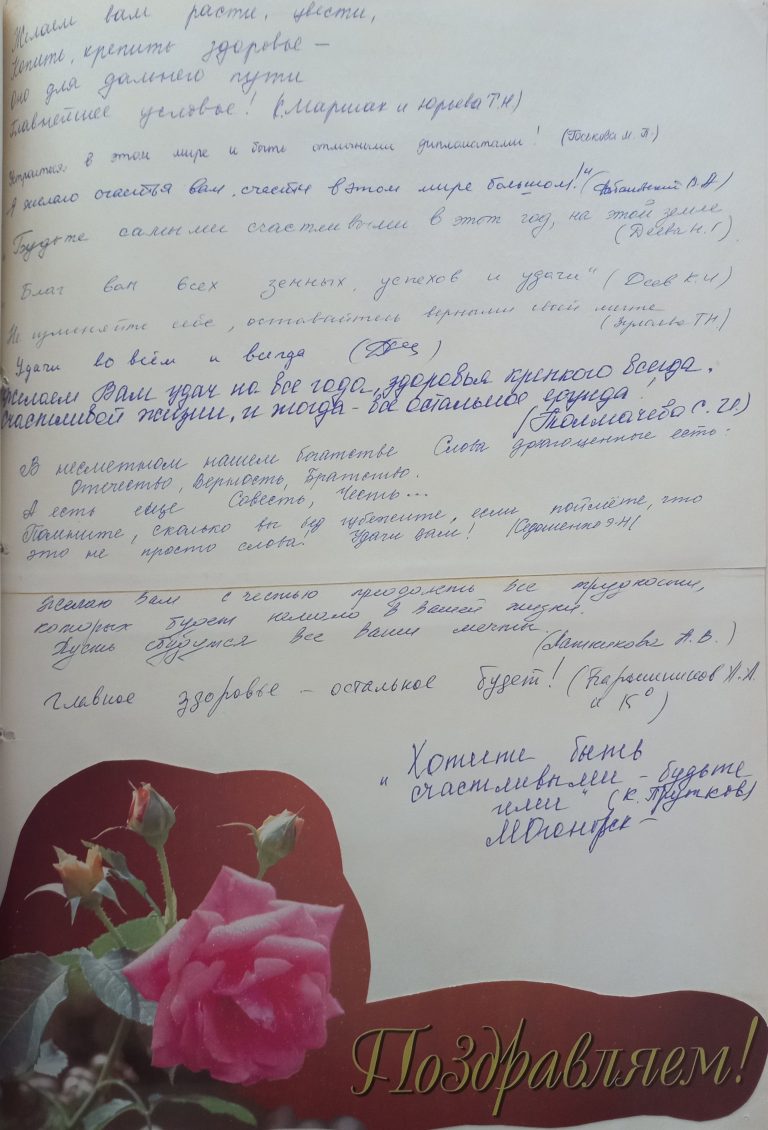 Желаем вам расти, цвести,
Копить, крепить здоровье –
Оно для дальнего пути
Главнейшее условье! (С. Маршак и Юрьева Т.Н)
в этом мире и быть отличными дипломатами! (М. П.)
Я желаю счастья вам, счастья в этом мире большом!" (В. А)
"Будьте самыми счастливыми в этот год, на этой земле
(Деева Н. Г)
Благ вам всех земных, успехов и удачи" (Деев К. И)
Не изменяйте себе, оставайтесь верными своей мечте
(Т.Н.)
Удачи во всём и всегда
Желаем Вам удач на все года, здоровья крепкого всегда.
Счастливой жизни, и тогда – всё остальное ерунда!
(Толмачева С. И.)
В несметном нашем богатстве Слова драгоценные есть:
Отечество, Верность, Братство.
А есть еще Совесть, Честь...
Помните, сколько вы бед избежите, если поймёте, что
это не просто слова! Удачи вам!
Желаю Вам с честью преодолеть все трудности,
которых будет немало в Вашей жизни.
Пусть сбудутся все Ваши мечты.
(А. В.)
Главное здоровье – остальное будет! (Барышников А. А.
и К°)
"Хотите быть
счастливыми – будьте
ими" (К. Прутков)
Поздравляем!